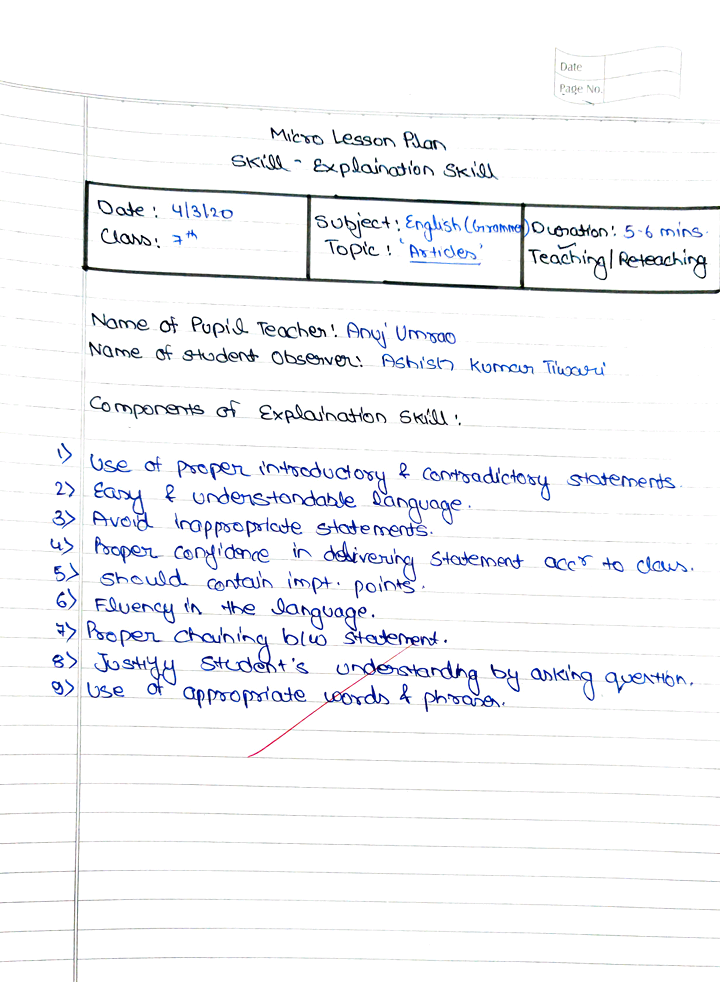 Date
Page No.
Micro Lesson Plan
Skill - Explaination Skill
Date: 4/3/20
Class: 7th
Subject: English (Grammer)
Topic: 'Articles'
Duoration: 5-6 mins.
Teaching/Reteaching
Name of Pupil Teacher: Anuj Umrao
Name of student Observer: Ashish Kumar Tiwari
Components of Explaination Skill:
1) Use of proper introductory & contradictory statements.
2) Easy & understandable language.
3) Avoid inappropriate statements.
4) Proper confidence in delivering statement accr to class.
5) Should contain impt. points.
6) Fluency in the language.
7) Proper chaining b/w statement.
8) Justify student's understanding by asking question.
9) Use of appropriate words & phrases.